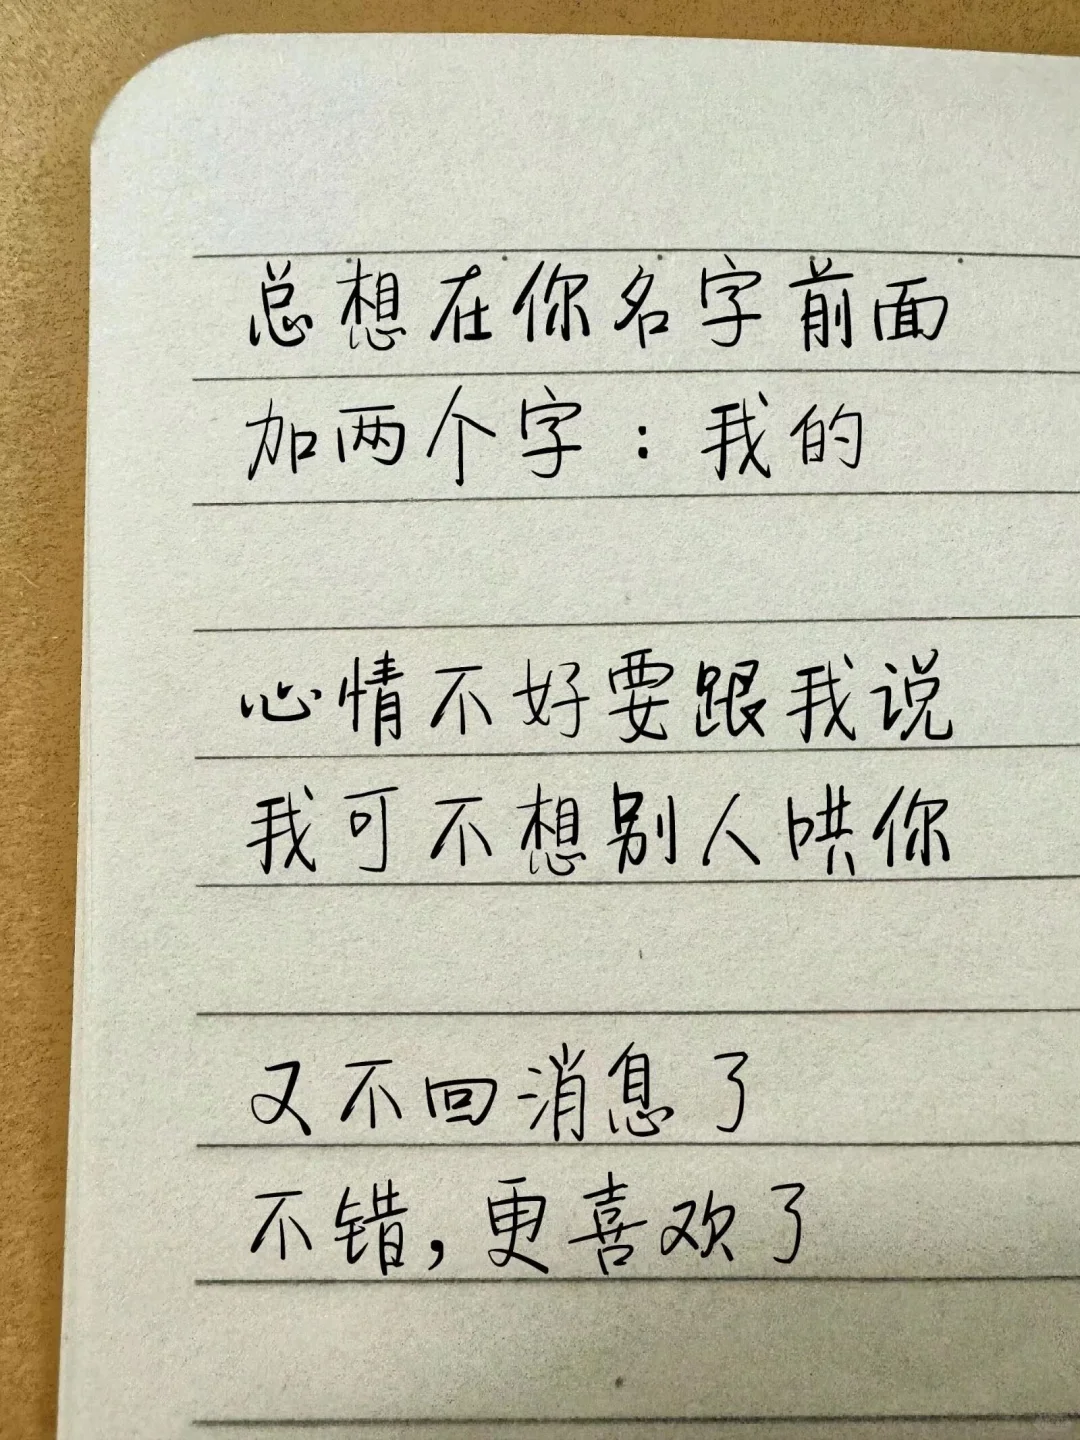 总想在你名字前面
加两个字：我的
心情不好要跟我说
我可不想别人哄你
又不回消息了
不错，更喜欢了